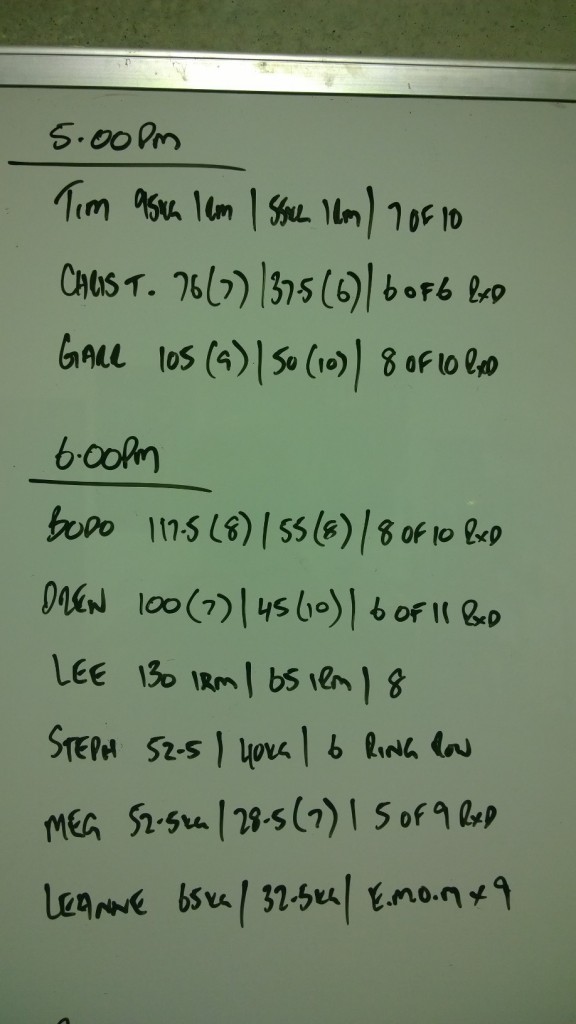 5.00Pm
Tim 95kg 1Rm | 55kg 1Rm | 7 OF 10
CHRIS T. 76(7) | 37.5(6) | 6 OF 6 RxD
GARR 105 (9) | 50 (10) | 8 OF 10 RxD
6.00Pm
BODO 117.5 (8) | 55 (8) | 8 OF 10 RxD
DREW 100 (7) | 45 (10) | 6 OF 11 RxD
LEE 130 1Rm | 65 1Rm | 8
STEPH 52.5 | 40KG | 6 RING ROW
MEG 52.5KG | 28.5 (7) | 5 OF 9 RxD
LEANNE 65KG | 32.5KG | E.M.O.M x 9